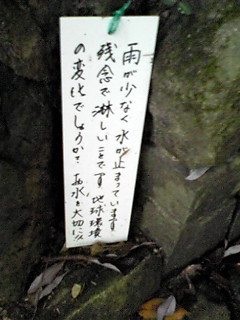 雨が少なく水が止まっています
残念で淋しいことです 地球環境
の変化でしょうか? お水を大切に